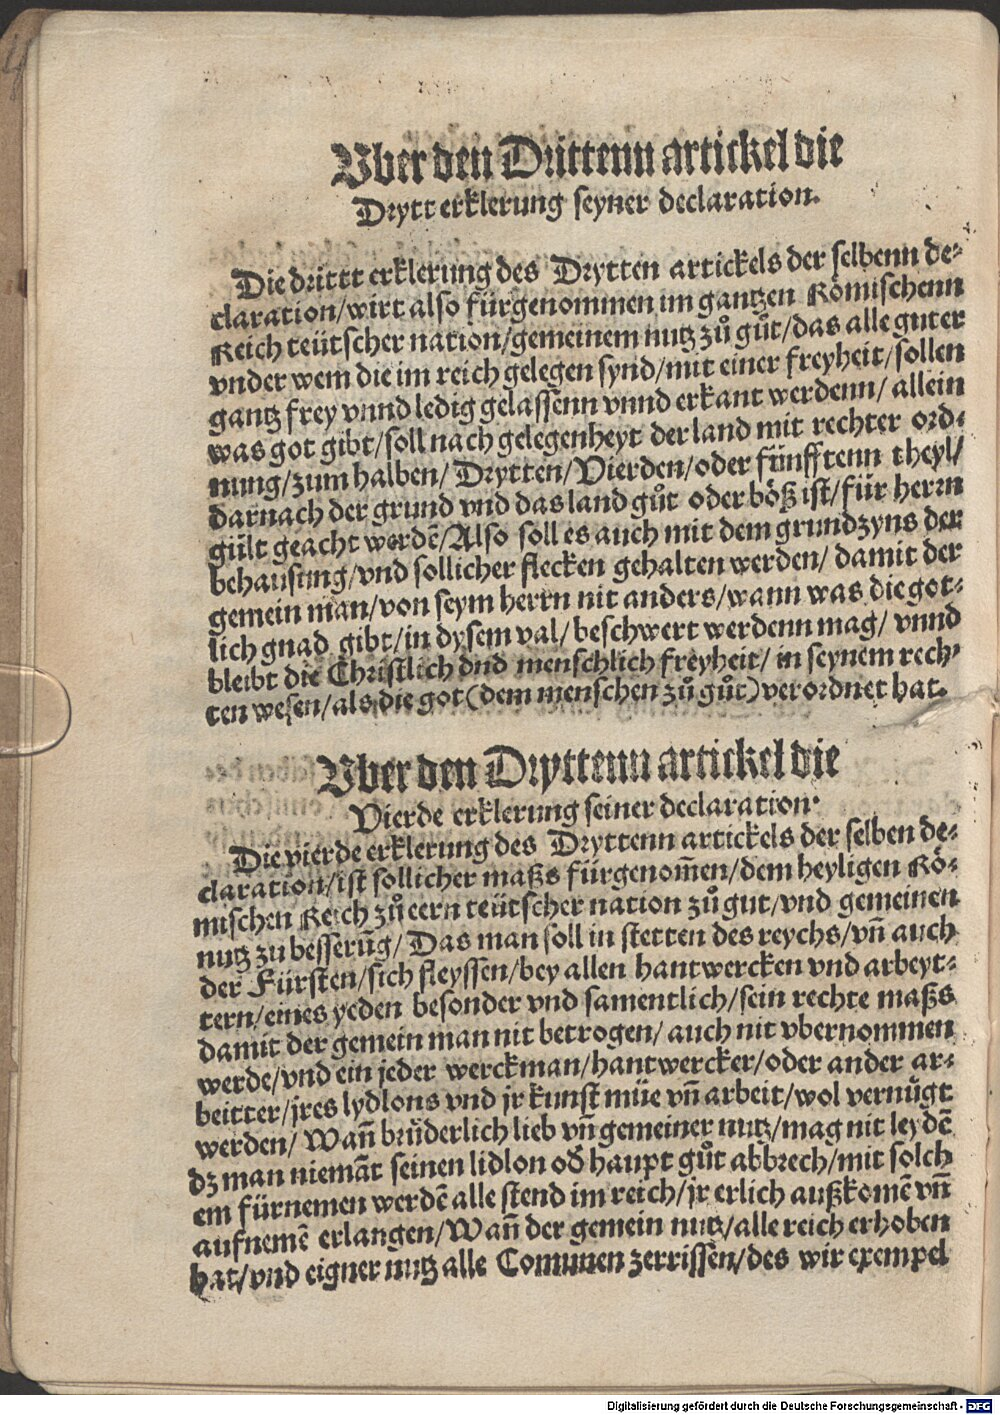 Vber den Drittenn artickel die
Drytt erklerung seyner declaration.
Die drittt erklerung des Drytten artickels der selbenn de⸗
claration/wirt also fürgenommen im gantzen Römischenn
Reich teütscher nation/gemeinem nutz zů gůt/das alle guter
vnder wem die im reich gelegen synd/mit einer freyheit/sollen
gantz frey vnnd ledig gelassenn vnnd erkant werdenn/ allein
was got gibt/soll nach gelegenheyt der land mit rechter ord⸗
nung/zum halben/ Drytten/Vierden/oder fünfftenn theyl/
darnach der grund vnd das land gůt oder böß ist/für herrn
gült geacht werdē/Also soll es auch mit dem grundzyns der
behausung/vnd sollicher flecken gehalten werden/ damit der
gemein man/von seym herrn nit anders/wann was die got⸗
lich gnad gibt/in dysem val/ beschwert werdenn mag/ vnnd
bleibt die Christlich vnd menschlich freyheit/ in seynem rech⸗
ten wesen/als die got(dem menschen zů gůt)verordnet hat.
Vber den Dryttenn artickel die
Vierde erklerung seiner declaration.
Die vierde erklerung des Dryttenn artickels der selben de⸗
claration/ist sollicher maßs fürgenom̄en/dem heyligen Rö⸗
mischen Reich zů eern teütscher nation zů gut/vnd gemeinen
nutz zu besserūg/Das man soll in stetten des reychs/vn̄ auch
der Fürsten/sich fleyssen/bey allen hantwercken vnd arbeyt⸗
tern/eines yeden besonder vnd samentlich/sein rechte maßs
damit der gemein man nit betrogen/ auch nit vbernommen
werde/vnd ein jeder werckman/hantwercker/oder ander ar⸗
beitter/jres lydlons vnd jr kunst müe vn̄ arbeit/wol vernůgt
werden/ Wan̄ brůderlich lieb vn̄ gemeiner nutz/mag nit leydē
dz man niemāt seinen lidlon od̄ haupt gůt abbrech/mit solch
em fürnemen werdē alle stend im reich/jr erlich außkomē vn̄
aufnemē erlangen/Wan̄ der gemein nutz/alle reich erhoben
hat/vnd eigner nutz alle Comunen zerrissen/des wir exempel
Digitalisierung gefördert durch die Deutsche Forschungsgemeinschaft - DFG